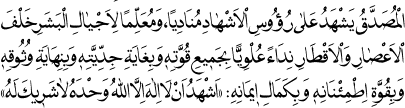 الْمُصَدَّقُ يَشْهَدُ عَلَى رُؤُوسِ الْاَشْهَادِ مُنَادِيًا، وَمُعَلِّمًا لِاَجْيَالِ الْبَشَرِ خَلْفَ
الْاَعْصَارِ وَالْاَقْطَارِ نِدَاءً عُلْوِيًّا بِجَمِيعِ قُوَّتِهِ وَبِغَايَةِ جِدِّيَّتِهِ، وَبِنِهَايَةِ وُثُوقِهِ
وَبِقُوَّةِ اطْمِئْنَانِهِ وَبِكَمَالِ اِيمَانِهِ: «اَشْهَدُ اَنْ لَا اِلٰهَ اِلَّا اللّٰهُ وَحْدَهُ لَا شَرِيكَ لَهُ»